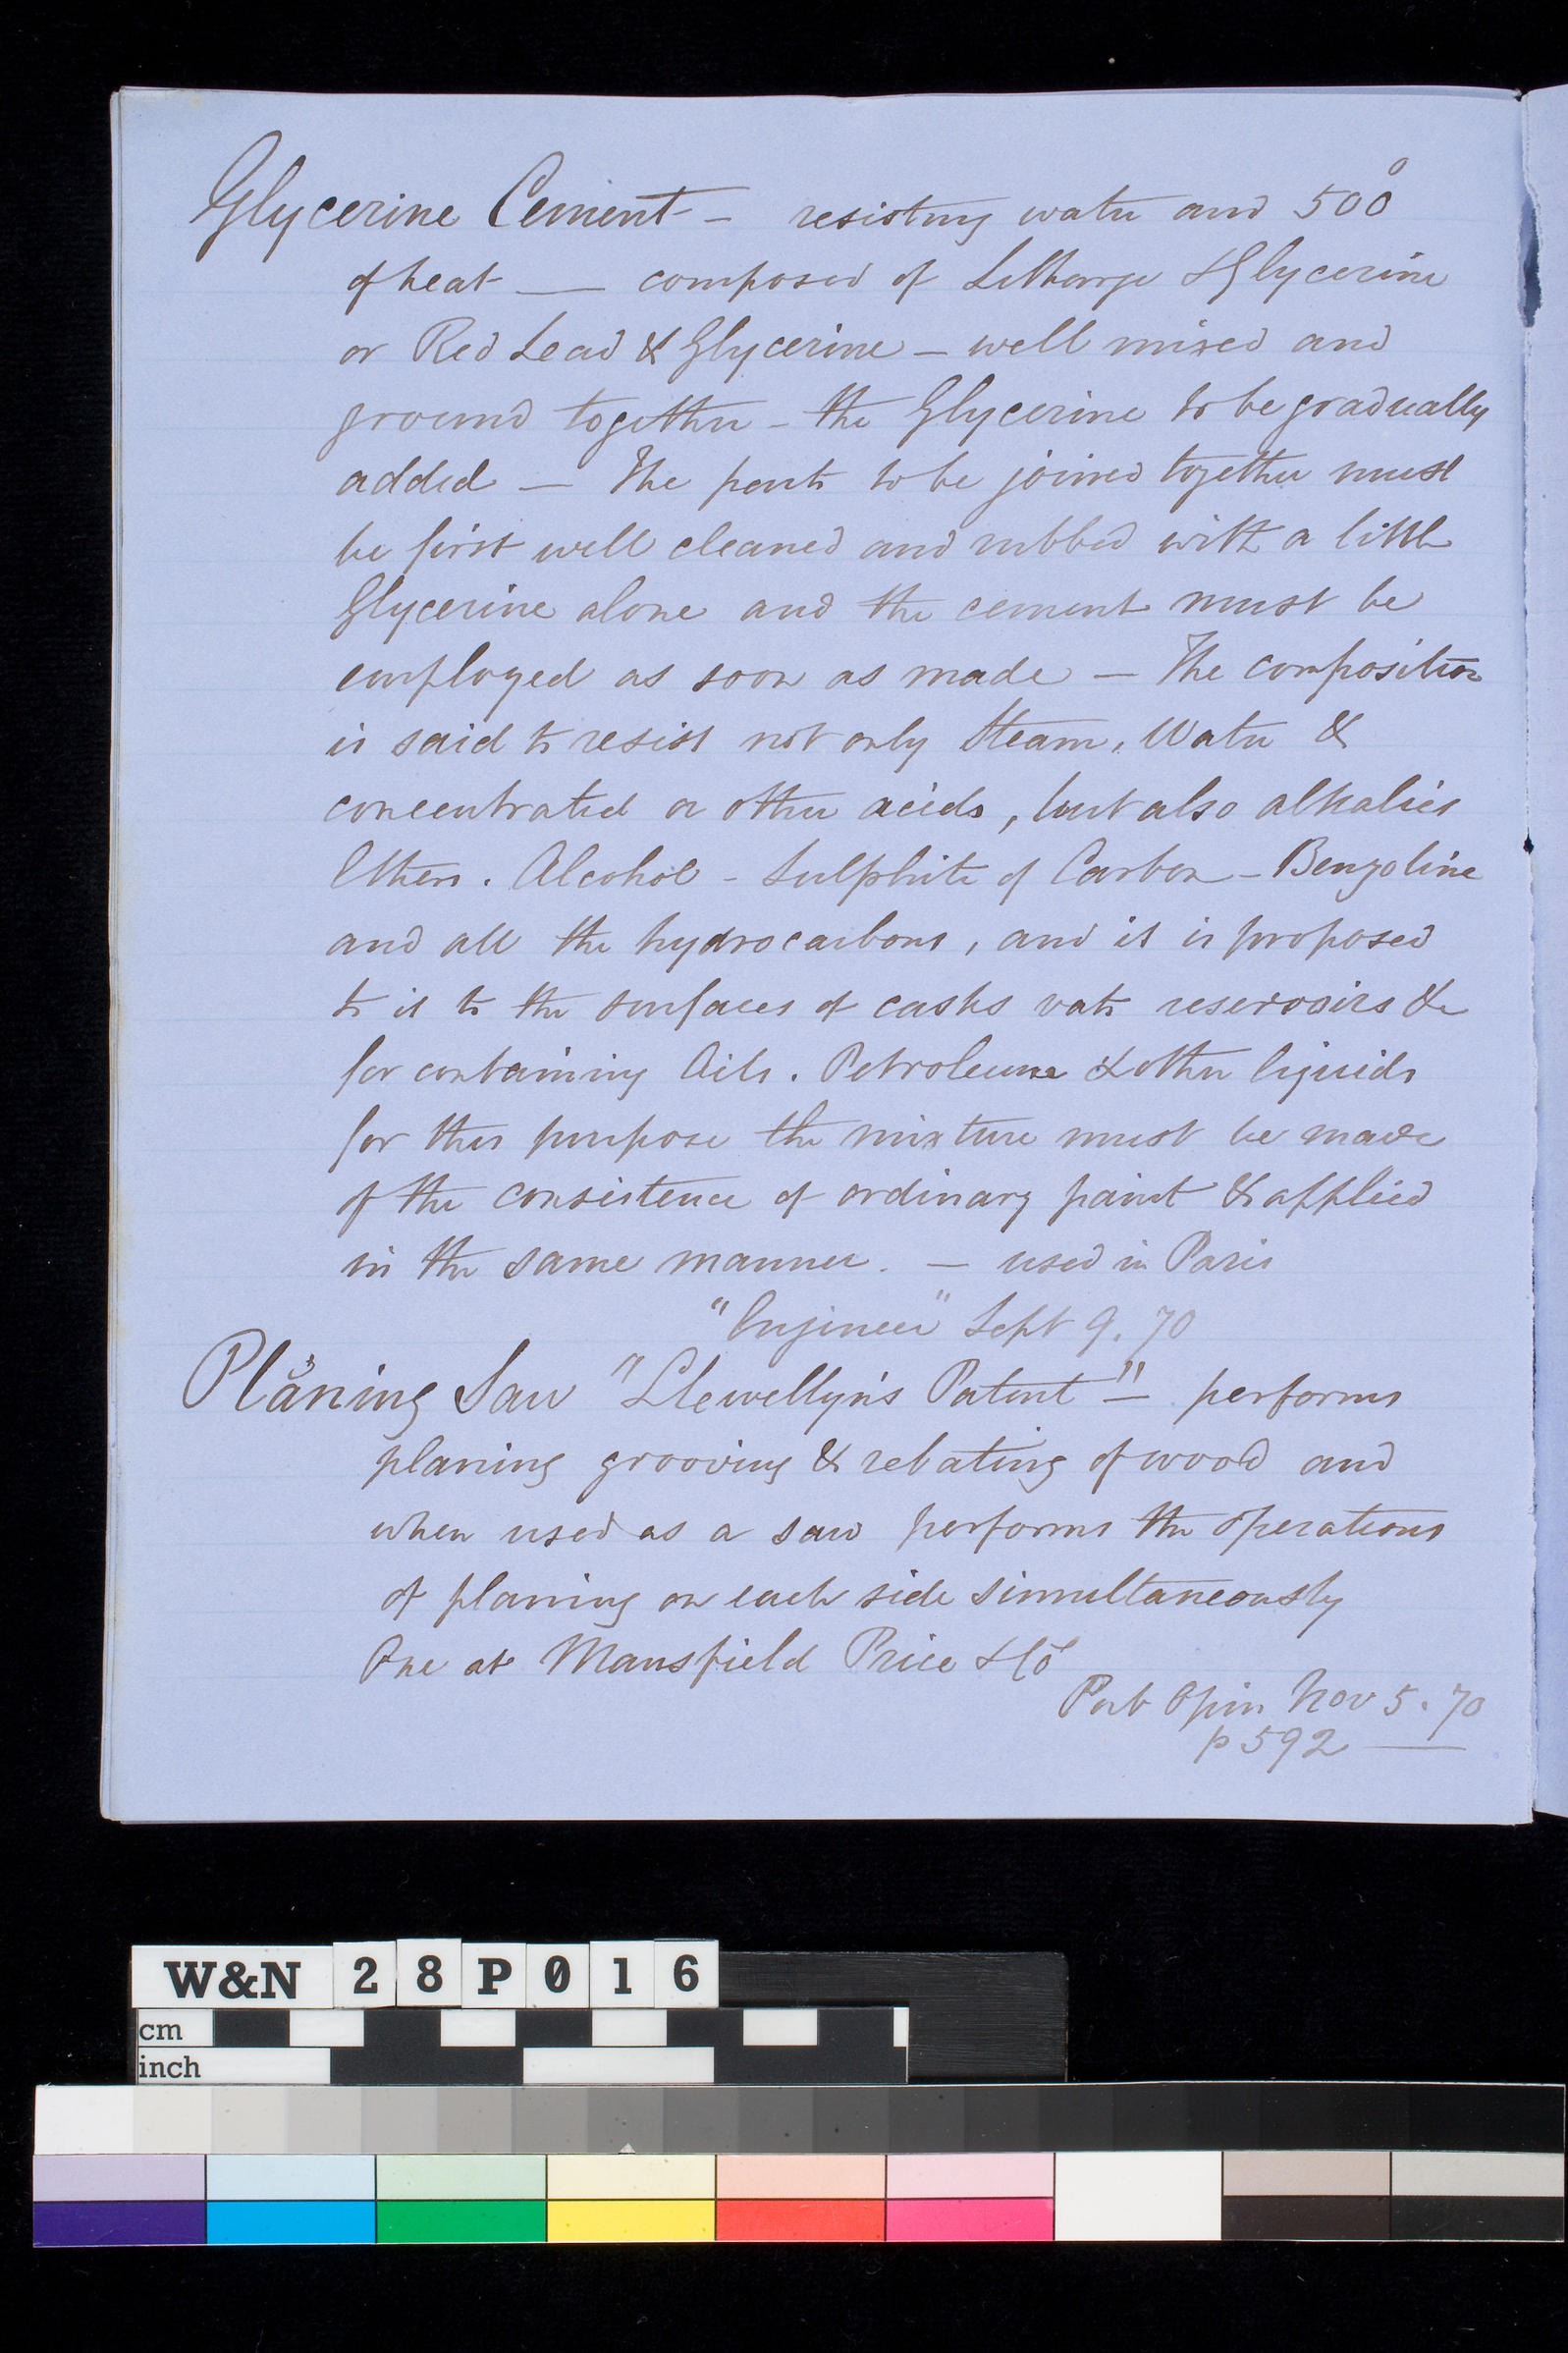 Glycerine Cement - resisting water and 500°
of heat — composed of Litharge & Glycerine
or Red Lead & Glycerine - well mixed and
ground together - the Glycerine to be gradually
added — The parts to be joined together must
be first well cleaned and rubbed with a little
Glycerine alone and the cement must be
employed as soon as made — The composition
is said to resist not only Steam, Water &
concentrated or other acids, but also alkalies
Ethers. Alcohol - Sulphite of Carbon - Benzoline
and all the hydrocarbons, and it is proposed
to it to the surfaces of casks vats reservoirs &c
for containing Oils. Petroleum & other liquids
for this purpose the mixture must be made
of the consistence of ordinary paint & applied
in the same manner. — used in Paris
"Engineer" Sept 9. 70
Planing Saw "Llewellyn's Patent" - performs
planing grooving & rebating of wood and
when used as a saw performs the operations
of planing on each side simultaneously
One at Mansfield Price & Co
Pub Opin Nov 5. 70
p 592 —
W&N 28P016
cm
inch